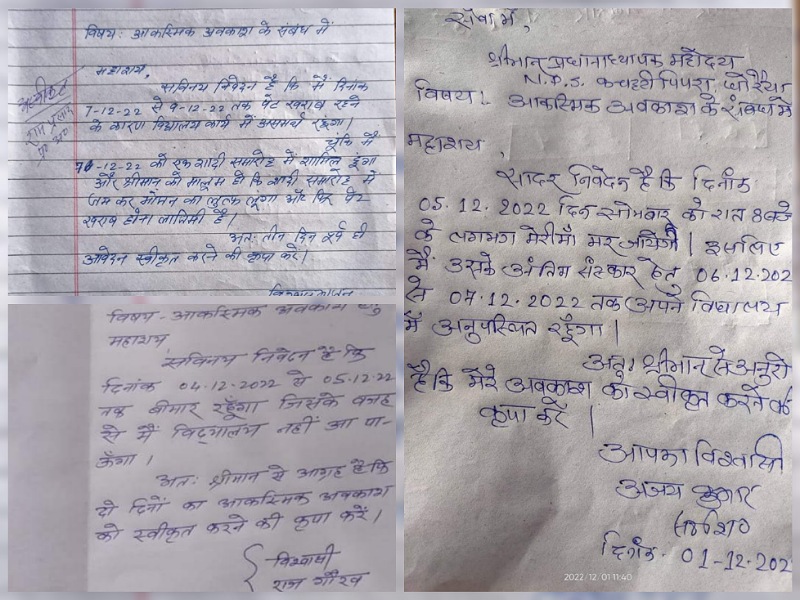 विषय: आकस्मिक अवकाश के संबंध में
महाशय,
सविनय निवेदन है कि मैं दिनांक
7-12-22 से 9-12-22 तक पेट खराब रहने
के कारण विद्यालय कार्य में असमर्थ रहूँगा।
चूंकि मैं
-12-22 को एक शादी समारोह में शामिल हूंगा
और श्रीमान को मालूम हो कि शादी समारोह में
जम कर भोजन का लुत्फ लूंगा और फिर पेट
खराब होना लाजिमी है।
अतः तीन दिन पूर्व ही
आवेदन स्वीकृत करने की कृपा करें।
विषय- आकस्मिक अवकाश हेतु
महाशय
सविनय निवेदन है कि
दिनांक 04.12.2022 से 05.12.22
तक बीमार रहूँगा जिसके वजह
से मैं विद्यालय नहीं आ पा-
ऊँगा।
अतः श्रीमान से आग्रह है कि
दो दिनों का आकस्मिक अवकाश
को स्वीकृत करने की कृपा करें।
विश्वासी
राज गौरव
सेवा में,
श्रीमान् प्रधानाध्यापक महोदय
कचहरी पिपरा,
विषय:- आकस्मिक अवकाश के संबंध में
महाशय,
सादर निवेदन है कि दिनांक
05.12.2022 दिन सोमवार को रात 8 बजे
के लगभग मेरी माँ मर जायेगी। इसलिए
मैं उसके अंतिम संस्कार हेतु 06.12.202
से 07.12.2022 तक अपने विद्यालय
में अनुपस्थित रहूँगा।
अतः श्रीमान से अनुरो
है कि मेरे अवकाश को स्वीकृत करने की
कृपा करें।
आपका विश्वासी
अजय कुमार
दिनांक- 01-12-202
2022/12/01 11:40